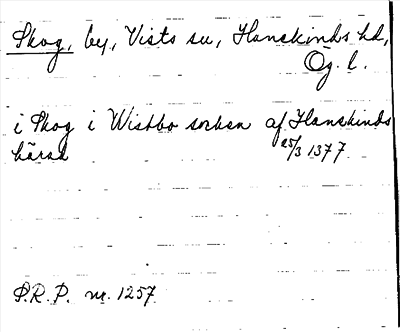 Skog, by, Vists sn, Hanekinds hd,
Ög. l.
i Skog i Wistbo socken af Hanekinds
härad 25/3 1377
P.R.P. nr. 1257